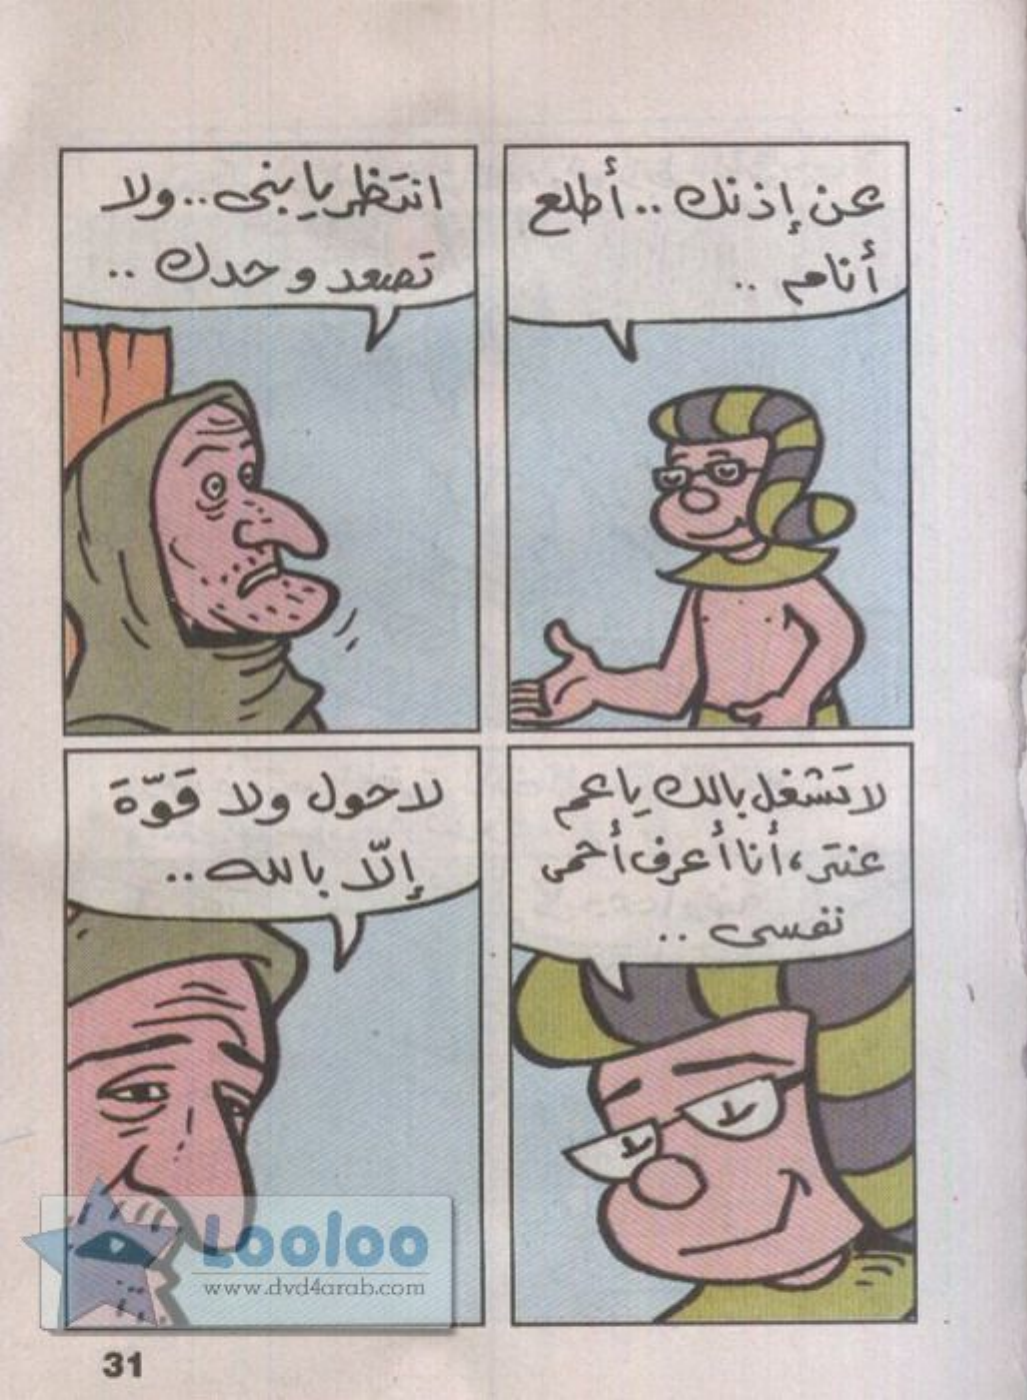 عن إذنك .. أطلع
أنام ..
انتظر يا بنى .. ولا
تصعد وحدك ..
لا تشغل بالك يا عم
عنتر، أنا أعرف أحمى
نفسى ..
لا حول ولا قَوّةَ
إلّا بالله ..
Looloo
www.dvd4arab.com
31